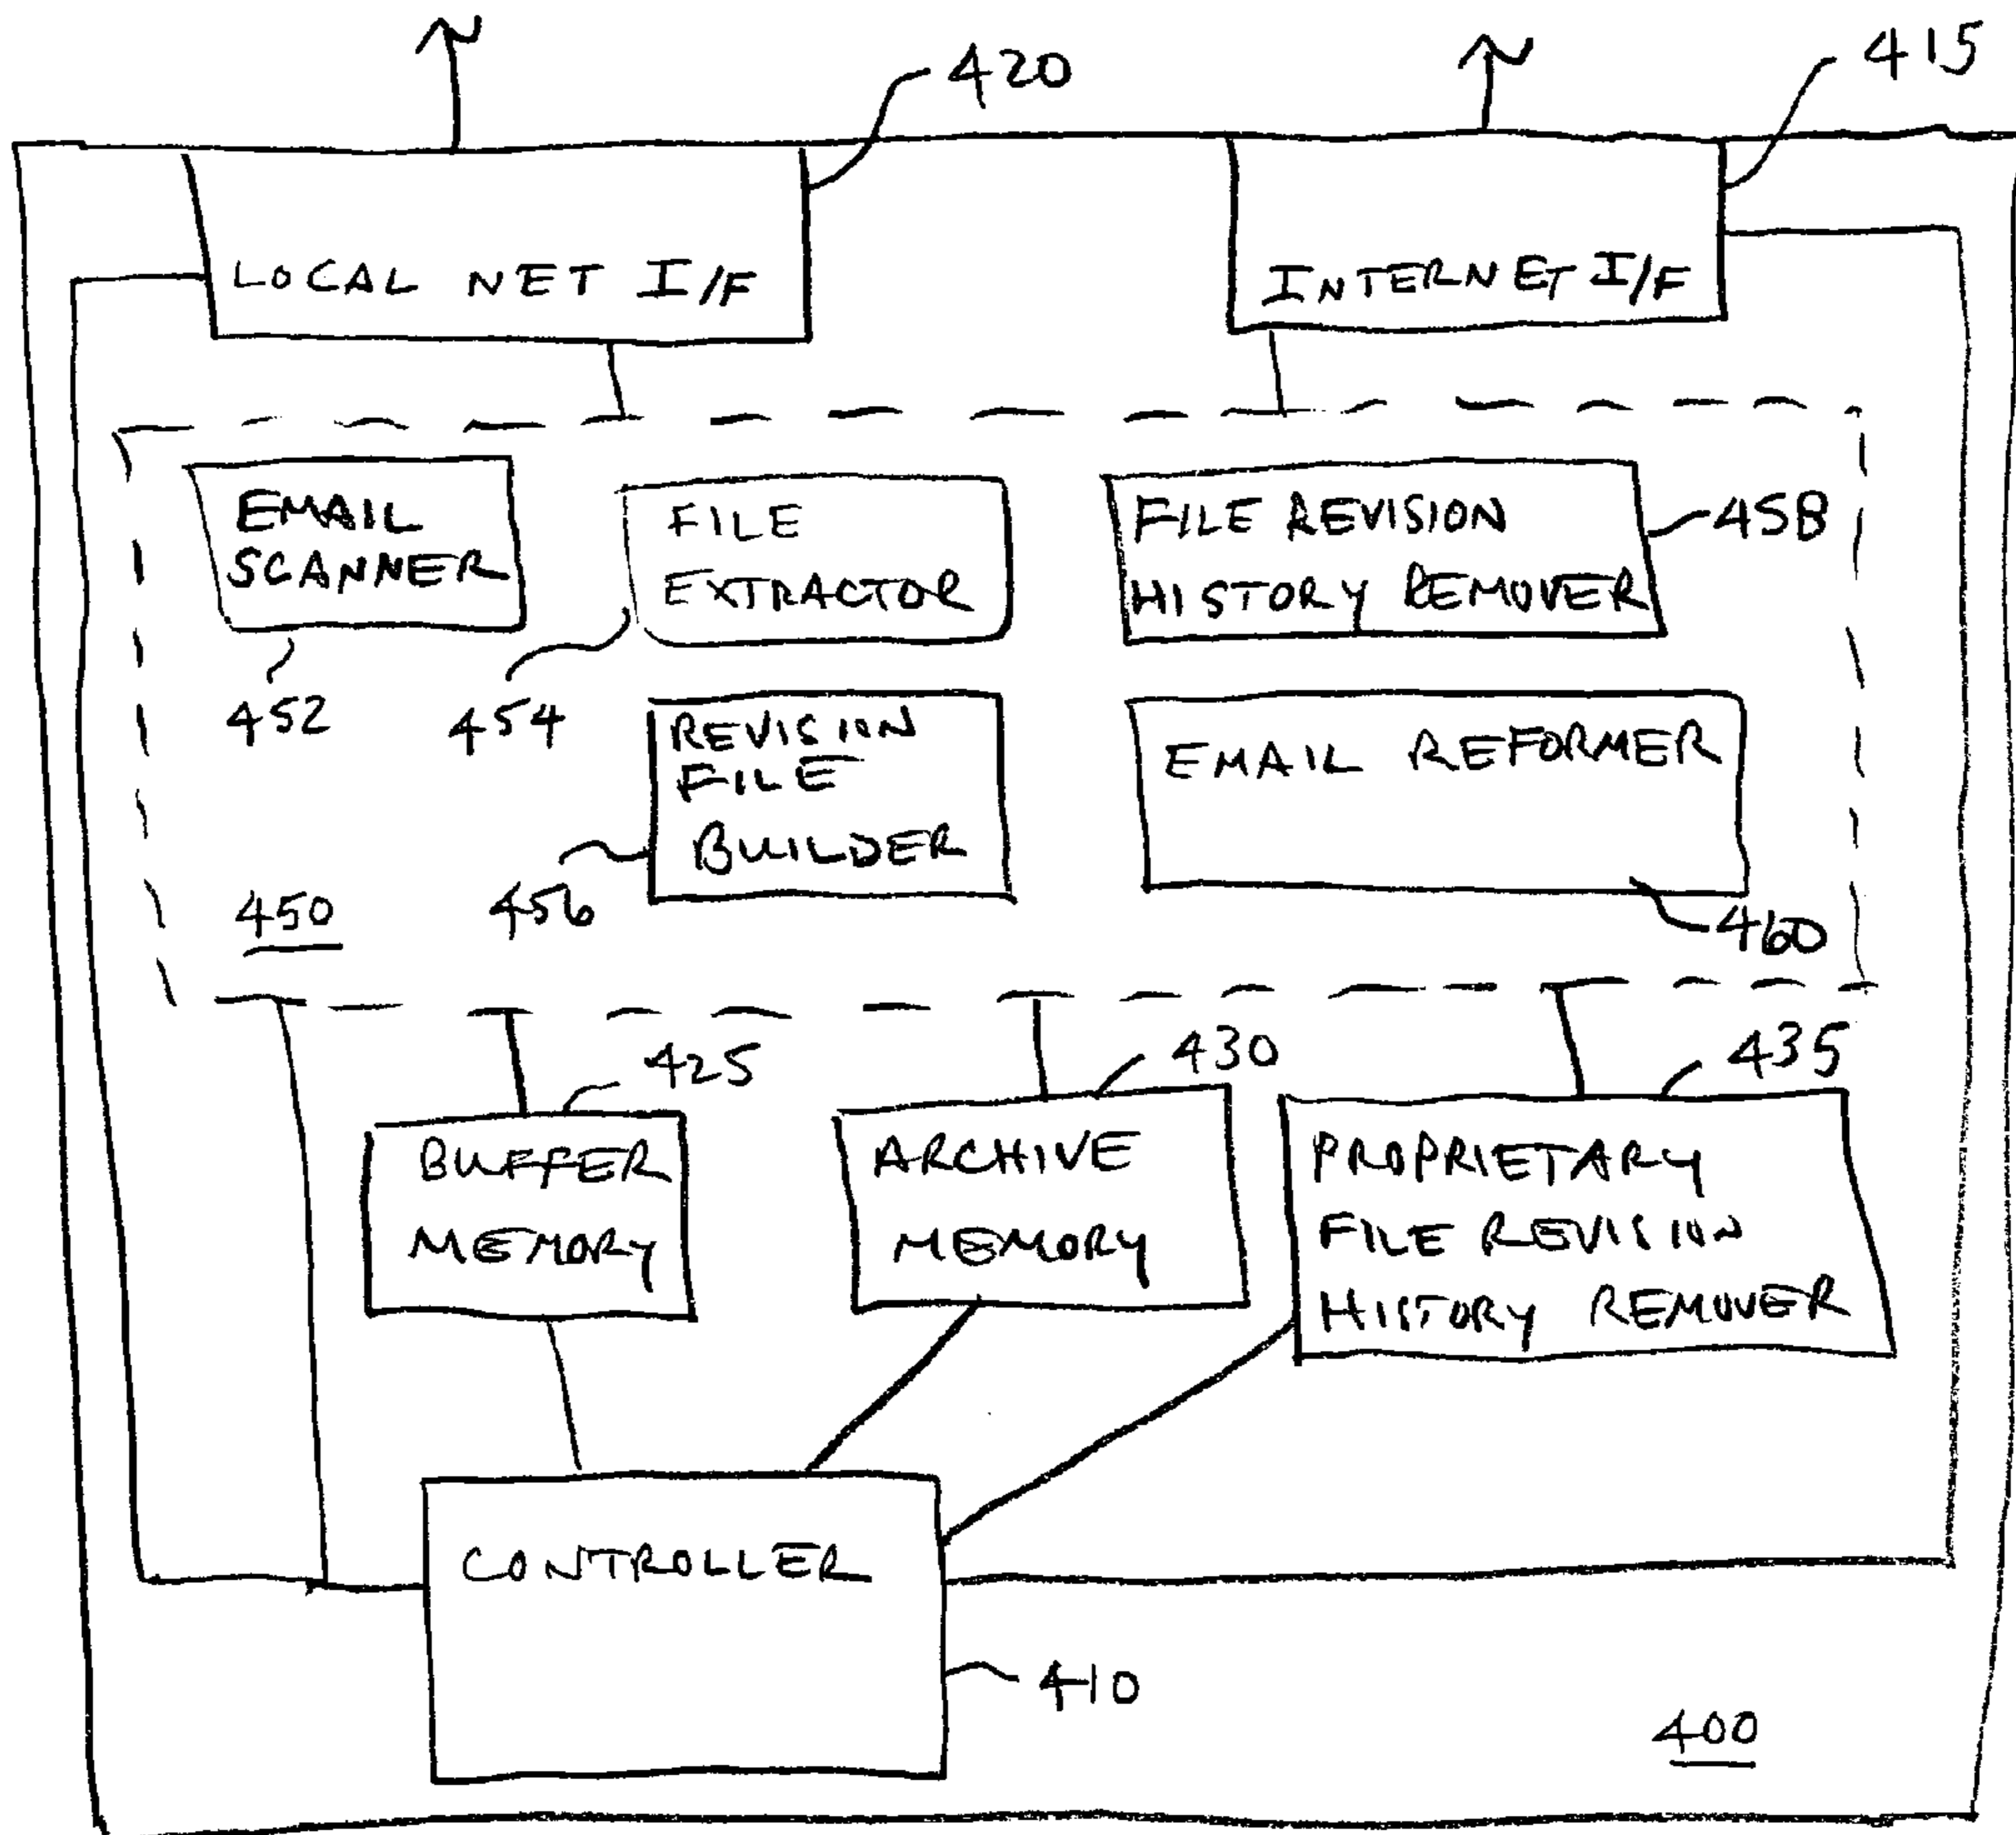 420
415
LOCAL NET I/F
INTERNET I/F
EMAIL
SCANNER
452
FILE
EXTRACTOR
454
FILE REVISION
HISTORY REMOVER
458
REVISION
FILE
BUILDER
456
EMAIL REFORMER
460
450
425
430
435
BUFFER
MEMORY
ARCHIVE
MEMORY
PROPRIETARY
FILE REVISION
HISTORY REMOVER
CONTROLLER
410
400